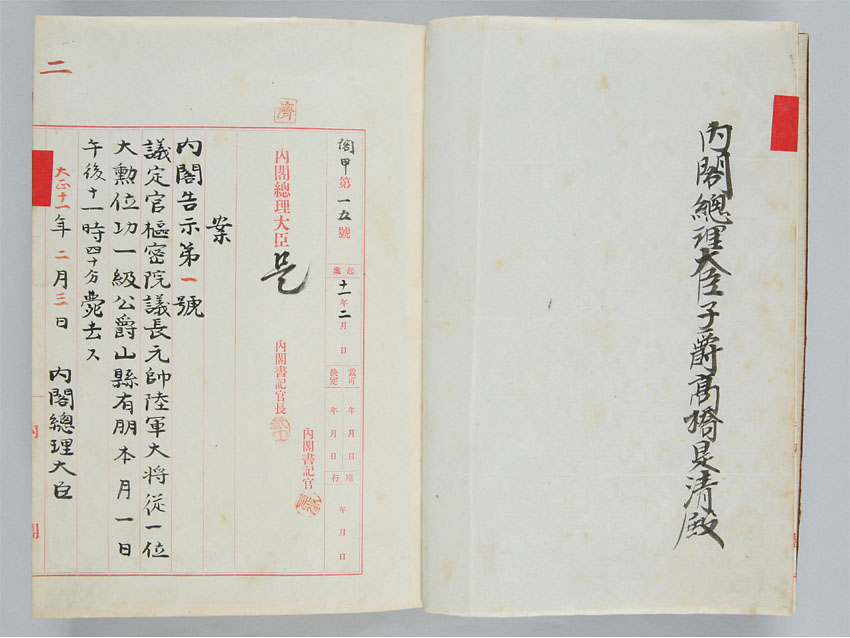 内閣總理大臣子爵高橋是清殿
閣甲第一五號
起案 十一年二月 日
裁可 年 月 日
決定 年 月 日
施行 年 月 日
濟
内閣總理大臣 是
内閣書記官長
内閣書記官
案
内閣告示第一號
議定官樞密院議長元帥陸軍大将從一位
大勲位功一級公爵山縣有朋本月一日
午後十一時四十分薨去ス
大正十一年二月三日 内閣總理大臣
二
内閣